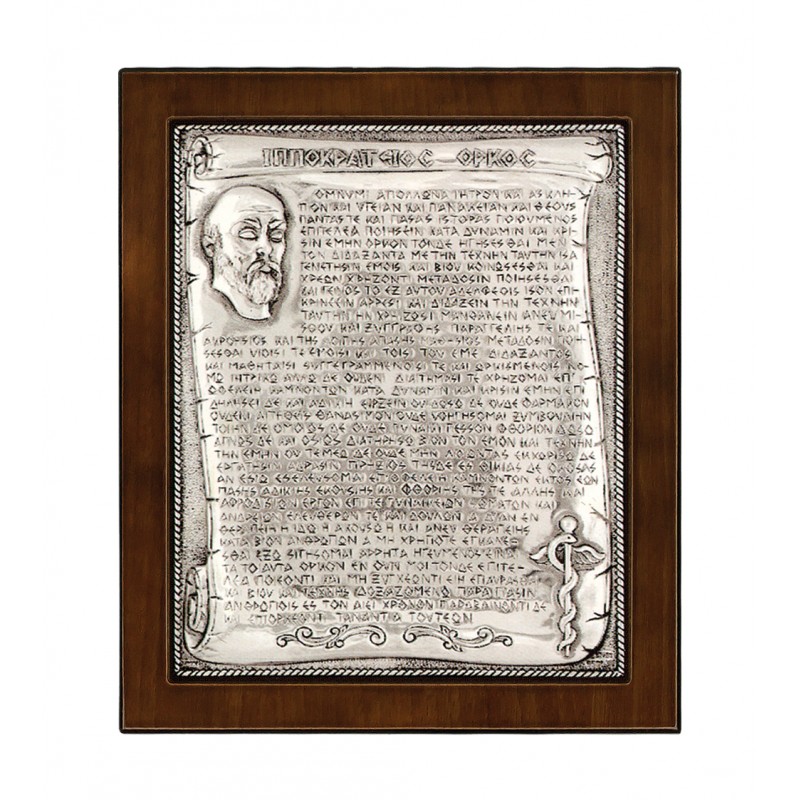 ΙΠΠΟΚΡΑΤΕΙΟΣ ΟΡΚΟΣ
ΟΜΝΥΜΙ ΑΠΟΛΛΩΝΑ ΙΗΤΡΟΝ ΚΑΙ ΑΣΚΛΗ-
ΠΙΟΝ ΚΑΙ ΥΓΕΙΑΝ ΚΑΙ ΠΑΝΑΚΕΙΑΝ ΚΑΙ ΘΕΟΥΣ
ΠΑΝΤΑΣ ΤΕ ΚΑΙ ΠΑΣΑΣ ΙΣΤΟΡΑΣ ΠΟΙΟΥΜΕΝΟΣ
ΕΠΙΤΕΛΕΑ ΠΟΙΗΣΕΙΝ ΚΑΤΑ ΔΥΝΑΜΙΝ ΚΑΙ ΚΡΙ-
ΣΙΝ ΕΜΗΝ ΟΡΚΟΝ ΤΟΝΔΕ ΗΓΗΣΕΣΘΑΙ ΜΕΝ
ΤΟΝ ΔΙΔΑΞΑΝΤΑ ΜΕ ΤΗΝ ΤΕΧΝΗΝ ΤΑΥΤΗΝ ΙΣΑ
ΓΕΝΕΤΗΣΙΝ ΕΜΟΙΣ ΚΑΙ ΒΙΟΥ ΚΟΙΝΩΣΕΣΘΑΙ ΚΑΙ
ΧΡΕΩΝ ΧΡΗΖΟΝΤΙ ΜΕΤΑΔΟΣΙΝ ΠΟΙΗΣΕΣΘΑΙ
ΚΑΙ ΓΕΝΟΣ ΤΟ ΕΞ ΑΥΤΟΥ ΑΔΕΛΦΕΟΙΣ ΙΣΟΝ ΕΠΙ-
ΚΡΙΝΕΕΙΝ ΑΡΡΕΣΙ ΚΑΙ ΔΙΔΑΞΕΙΝ ΤΗΝ ΤΕΧΝΗΝ
ΤΑΥΤΗΝ ΗΝ ΧΡΗΖΩΣΙ ΜΑΝΘΑΝΕΙΝ ΑΝΕΥ ΜΙ-
ΣΘΟΥ ΚΑΙ ΞΥΓΓΡΑΦΗΣ ΠΑΡΑΓΓΕΛΙΗΣ ΤΕ ΚΑΙ
ΑΚΡΟΗΣΙΟΣ ΚΑΙ ΤΗΣ ΛΟΙΠΗΣ ΑΠΑΣΗΣ ΜΑΘΗΣΙΟΣ ΜΕΤΑΔΟΣΙΝ ΠΟΙΗ-
ΣΕΣΘΑΙ ΥΙΟΙΣΙ ΤΕ ΕΜΟΙΣΙ ΚΑΙ ΤΟΙΣ ΤΟΥ ΕΜΕ ΔΙΔΑΞΑΝΤΟΣ
ΚΑΙ ΜΑΘΗΤΑΙΣΙ ΣΥΓΓΕΓΡΑΜΜΕΝΟΙΣΙ ΤΕ ΚΑΙ ΩΡΚΙΣΜΕΝΟΙΣ ΝΟ-
ΜΩ ΙΗΤΡΙΚΩ ΑΛΛΩ ΔΕ ΟΥΔΕΝΙ ΔΙΑΙΤΗΜΑΣΙ ΤΕ ΧΡΗΣΟΜΑΙ ΕΠ
ΩΦΕΛΕΙΗ ΚΑΜΝΟΝΤΩΝ ΚΑΤΑ ΔΥΝΑΜΙΝ ΚΑΙ ΚΡΙΣΙΝ ΕΜΗΝ ΕΠΙ
ΔΗΛΗΣΕΙ ΔΕ ΚΑΙ ΑΔΙΚΙΗ ΕΙΡΞΕΙΝ ΟΥ ΔΩΣΩ ΔΕ ΟΥΔΕ ΦΑΡΜΑΚΟΝ
ΟΥΔΕΝΙ ΑΙΤΗΘΕΙΣ ΘΑΝΑΣΙΜΟΝ ΟΥΔΕ ΥΦΗΓΗΣΟΜΑΙ ΞΥΜΒΟΥΛΙΗΝ
ΤΟΙΗΝΔΕ ΟΜΟΙΩΣ ΔΕ ΟΥΔΕ ΓΥΝΑΙΚΙ ΠΕΣΣΟΝ ΦΘΟΡΙΟΝ ΔΩΣΩ
ΑΓΝΩΣ ΔΕ ΚΑΙ ΟΣΙΩΣ ΔΙΑΤΗΡΗΣΩ ΒΙΟΝ ΤΟΝ ΕΜΟΝ ΚΑΙ ΤΕΧΝΗΝ
ΤΗΝ ΕΜΗΝ ΟΥ ΤΕΜΕΩ ΔΕ ΟΥΔΕ ΜΗΝ ΛΙΘΙΩΝΤΑΣ ΕΚΧΩΡΗΣΩ ΔΕ
ΕΡΓΑΤΗΣΙΝ ΑΝΔΡΑΣΙΝ ΠΡΗΞΙΟΣ ΤΗΣΔΕ ΕΣ ΟΙΚΙΑΣ ΔΕ ΟΚΟΣΑΣ
ΑΝ ΕΣΙΩ ΕΣΕΛΕΥΣΟΜΑΙ ΕΠ ΩΦΕΛΕΙΗ ΚΑΜΝΟΝΤΩΝ ΕΚΤΟΣ ΕΩΝ
ΠΑΣΗΣ ΑΔΙΚΙΗΣ ΕΚΟΥΣΙΗΣ ΚΑΙ ΦΘΟΡΙΗΣ ΤΗΣ ΤΕ ΑΛΛΗΣ ΚΑΙ
ΑΦΡΟΔΙΣΙΩΝ ΕΡΓΩΝ ΕΠΙ ΤΕ ΓΥΝΑΙΚΕΙΩΝ ΣΩΜΑΤΩΝ ΚΑΙ
ΑΝΔΡΕΙΩΝ ΕΛΕΥΘΕΡΩΝ ΤΕ ΚΑΙ ΔΟΥΛΩΝ Α Δ ΑΝ ΕΝ
ΘΕΡΑΠΕΙΗ Η ΙΔΩ Η ΑΚΟΥΣΩ Η ΚΑΙ ΑΝΕΥ ΘΕΡΑΠΕΙΗΣ
ΚΑΤΑ ΒΙΟΝ ΑΝΘΡΩΠΩΝ Α ΜΗ ΧΡΗ ΠΟΤΕ ΕΚΛΑΛΕΕ-
ΣΘΑΙ ΕΞΩ ΣΙΓΗΣΟΜΑΙ ΑΡΡΗΤΑ ΗΓΕΥΜΕΝΟΣ ΕΙΝΑΙ
ΤΑ ΤΟΙΑΥΤΑ ΟΡΚΟΝ ΜΕΝ ΟΥΝ ΜΟΙ ΤΟΝΔΕ ΕΠΙΤΕ-
ΛΕΑ ΠΟΙΕΟΝΤΙ ΚΑΙ ΜΗ ΞΥΓΧΕΟΝΤΙ ΕΙΗ ΕΠΑΥΡΑΣΘΑΙ
ΚΑΙ ΒΙΟΥ ΚΑΙ ΤΕΧΝΗΣ ΔΟΞΑΖΟΜΕΝΩ ΠΑΡΑ ΠΑΣΙΝ
ΑΝΘΡΩΠΟΙΣ ΕΣ ΤΟΝ ΑΙΕΙ ΧΡΟΝΟΝ ΠΑΡΑΒΑΙΝΟΝΤΙ ΔΕ
ΚΑΙ ΕΠΙΟΡΚΕΟΝΤΙ ΤΑΝΑΝΤΙΑ ΤΟΥΤΕΩΝ